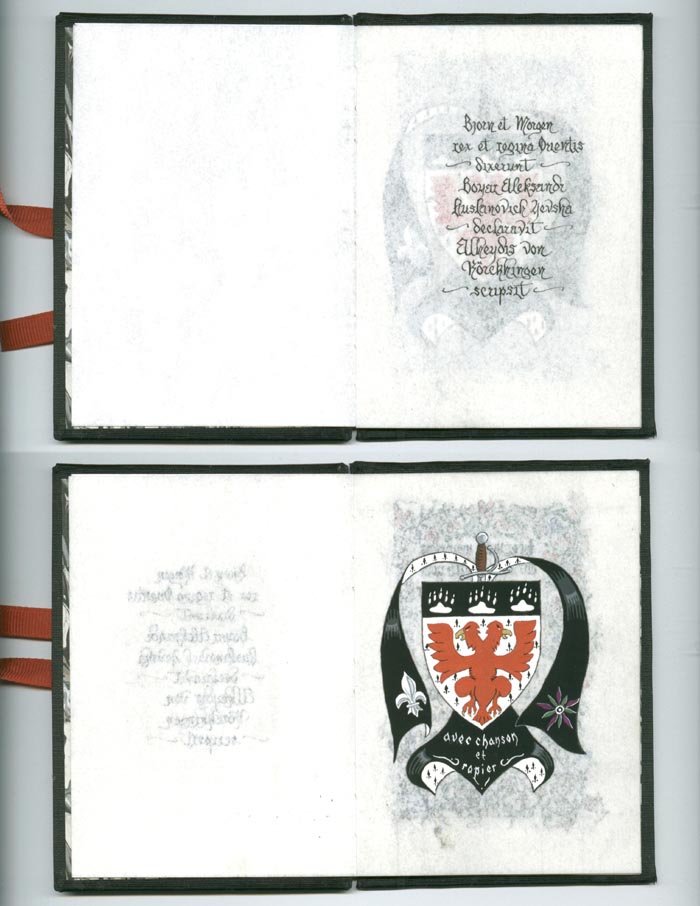 Bjorn et Morgen
rex et regina Outentis
dixerunt
Boyar Aleksandr
Ruslanovich Yevsha
declaravit
Alheydis von
Körckhingen
scripsit
avec chanson
et
rapier